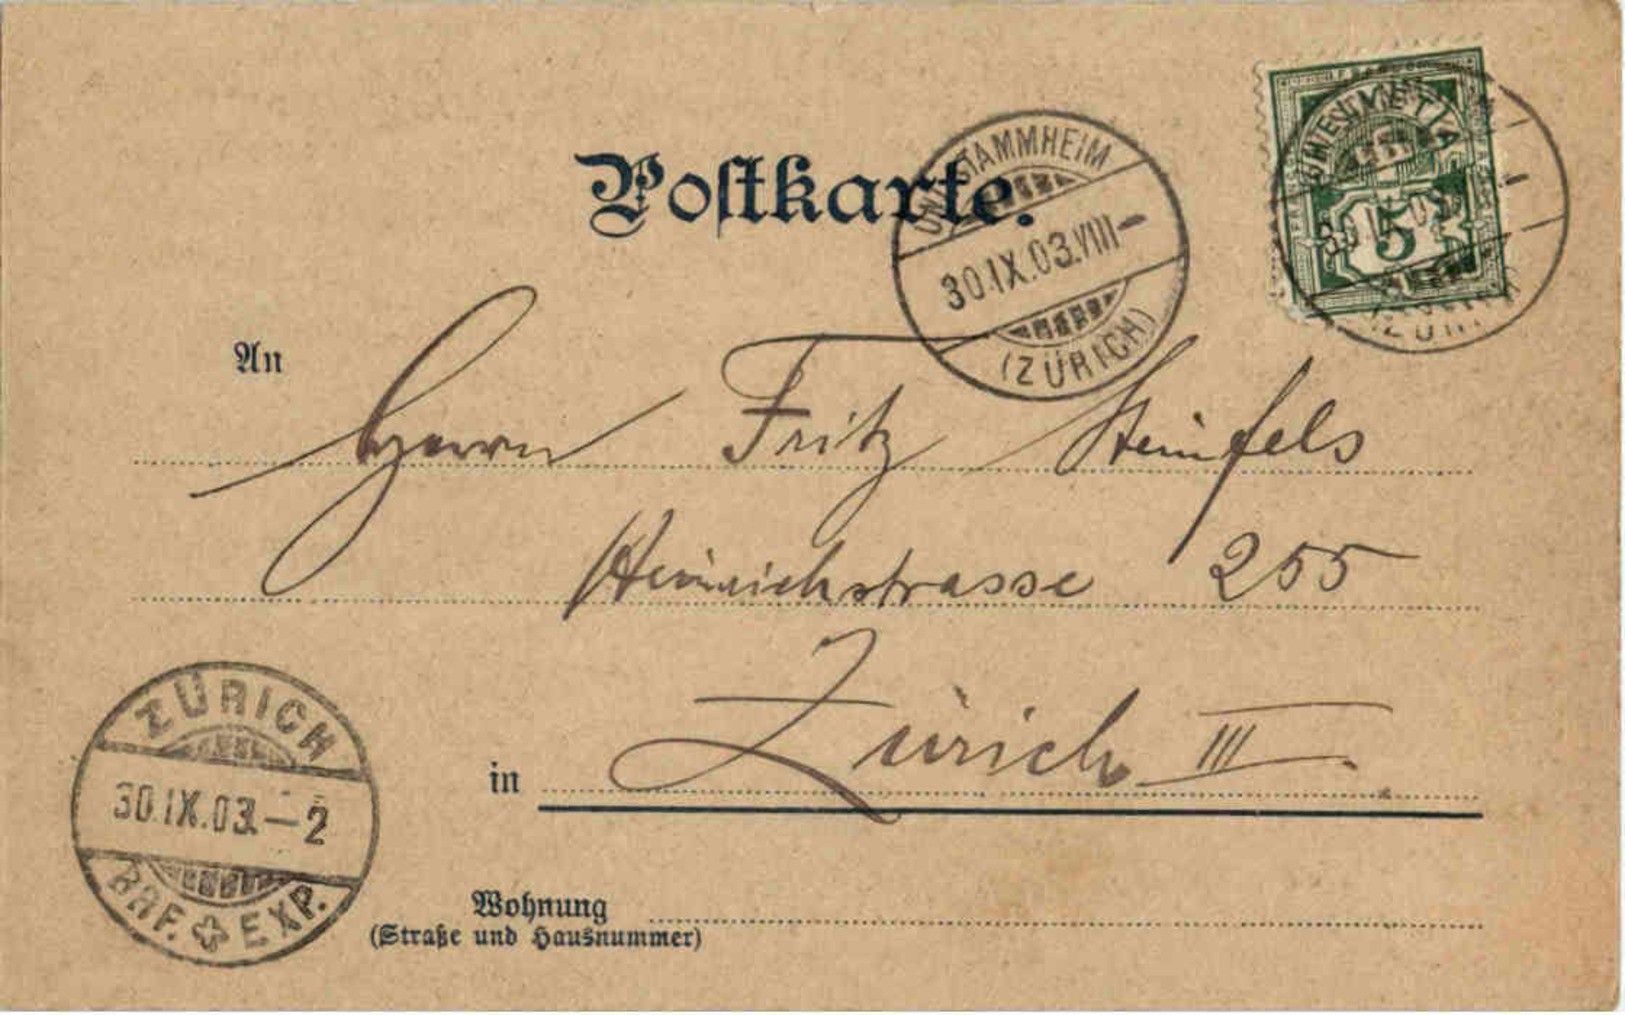 Postkarte.
UNT. STAMMHEIM
30.IX.03.VIII–
(ZÜRICH)
HELVETIA
5
An
Herrn Fritz Steinfels
Heinrichstrasse 255
in Zürich III.
ZÜRICH
30.IX.03.–2
BRF. EXP.
Wohnung
(Straße und Hausnummer)